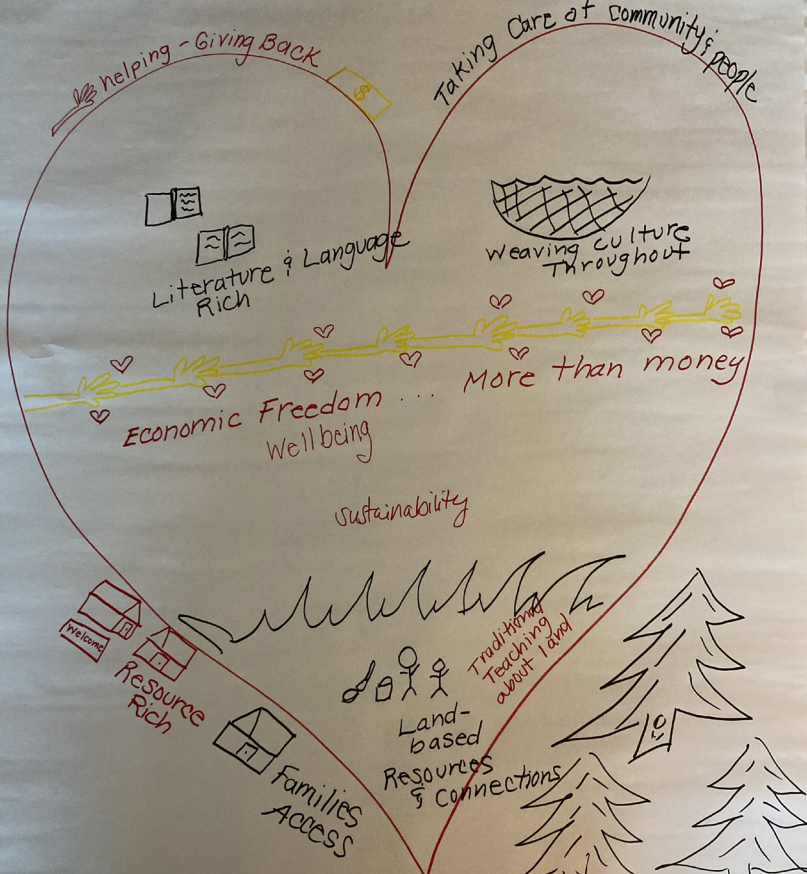 helping - Giving Back
$
Taking Care of Community & people
Literature & Language
Rich
Weaving Culture
Throughout
Economic Freedom ... More than money
Wellbeing
Sustainability
Welcome
Resource
Rich
Families
Access
Traditional
Teaching
about land
Land-
based
Resources
& Connections